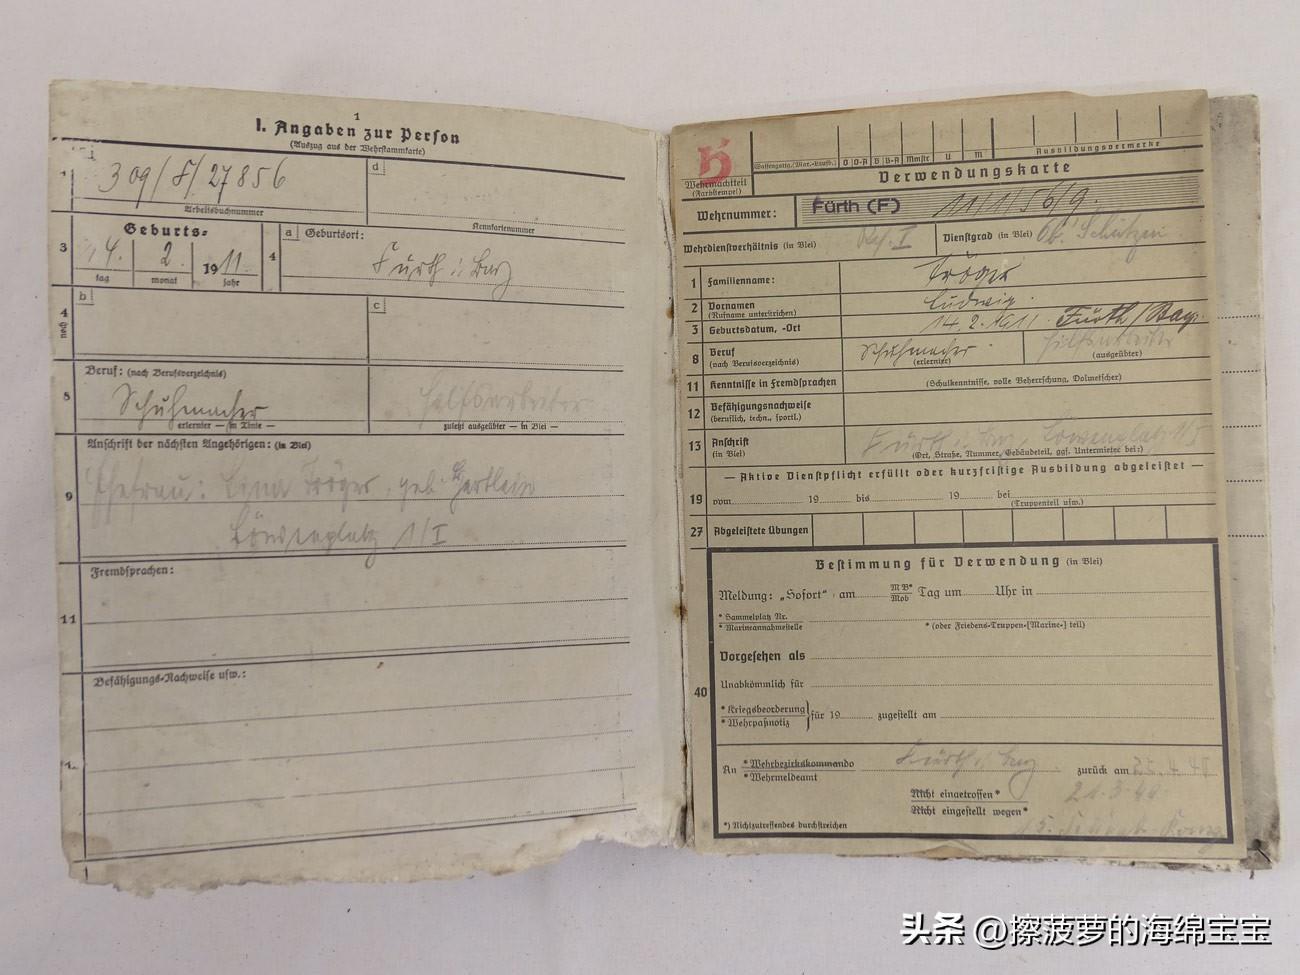 1
I. Angaben zur Person
(Auszug aus der Wehrstammkarte)
1
309/F/27856
Arbeitsbuchnummer
d
Kennkartenummer
3
Geburts-
14. 2. 1911.
tag monat jahr
4
a Geburtsort:
Fürth i. Bay
4
noch
b
c
5
Beruf: (nach Berufsverzeichnis)
Schuhmacher
erlernter — in Tinte —
Hilfsarbeiter
zuletzt ausgeübter — in Blei —
9
Anschrift der nächsten Angehörigen: (in Blei)
Ehefrau: Lina Tröger, geb. Hertlein
Löwenplatz 1/I
11
Fremdsprachen:
Befähigungs-Nachweise usw.:
H
Wehrmachtteil
(Farbstempel)
Waffengattg. (Mar.-Laufb.) O O-A B B-A Mmstr U M Ausbildungsvermerke
Verwendungskarte
Wehrnummer: Fürth (F) 11/1/56/9.
Wehrdienstverhältnis (in Blei) Res. I Dienstgrad (in Blei) Ob. Schützen
1 Familienname: Tröger
2 Vornamen Ludwig
(Rufname unterstrichen)
3 Geburtsdatum, -Ort 14. 2. 1911. Fürth/Bay.
8 Beruf Schuhmacher Hilfsarbeiter
(nach Berufsverzeichnis) (erlernter) (ausgeübter)
11 Kenntnisse in Fremdsprachen (Schulkenntnisse, volle Beherrschung, Dolmetscher)
12 Befähigungsnachweise
(beruflich, techn., sportl.)
13 Anschrift Fürth i. Bay, Löwenplatz 1/I
(in Blei) (Ort, Straße, Nummer, Gebäudeteil, ggf. Untermieter bei:)
— Aktive Dienstpflicht erfüllt oder kurzfristige Ausbildung abgeleistet —
19 vom 19 bis 19 bei
(Truppenteil usw.)
27 Abgeleistete Übungen
Bestimmung für Verwendung (in Blei)
Meldung: „Sofort“ am MB* Mob Tag um Uhr in
* Sammelplatz Nr.
* Marineannahmestelle * (oder Friedens-Truppen-[Marine-] teil)
Vorgesehen als
40
Unabkömmlich für
* Kriegsbeorderung
* Wehrpaßnotiz } für 19 zugestellt am
An * Wehrbezirkskommando
* Wehrmeldeamt
Fürth i. Bay
zurück am
21.3.40
Nicht eingetroffen*
Nicht eingestellt wegen*
*) Nichtzutreffendes durchstreichen
头条 @擦菠萝的海绵宝宝